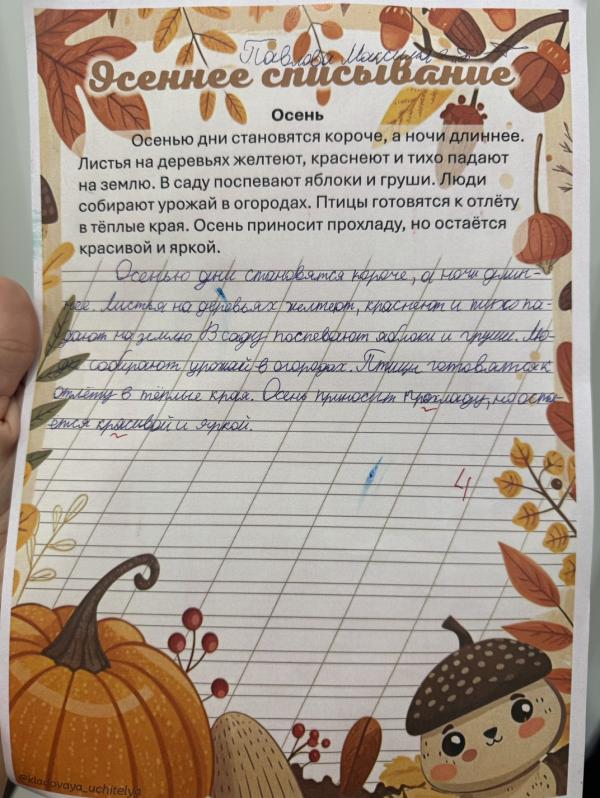 Павлова Максима
Осеннее списывание
Осень
Осенью дни становятся короче, а ночи длиннее.
Листья на деревьях желтеют, краснеют и тихо падают
на землю. В саду поспевают яблоки и груши. Люди
собирают урожай в огородах. Птицы готовятся к отлёту
в тёплые края. Осень приносит прохладу, но остаётся
красивой и яркой.
Осенью дни становятся короче, а ночи длин-
нее. Листья на деревьях желтеют, краснеют и тихо па-
дают на землю. В саду поспевают яблоки и груши. Лю-
ди собирают урожай в огородах. Птицы готовятся к
отлёту в тёплые края. Осень приносит прохладу, но оста-
ётся красивой и яркой.
4
@kladovaya_uchitelya